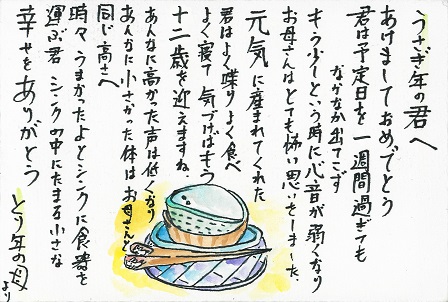 うさぎ年の君へ
あけましておめでとう
君は予定日を一週間過ぎても
なかなか出てこず
もう少しという時に心音が弱くなり
お母さんはとても怖い思いをしました。
元気に産まれてくれた
君はよく喋りよく食べ
よく寝て気づけばもう
十二歳を迎えますね。
あんなに高かった声は低くなり
あんなに小さかった体はお母さんと
同じ高さへ
時々うまかったよとシンクに食器を
運ぶ君 シンクの中にたまる小さな
幸せをありがとう
とり年の母より